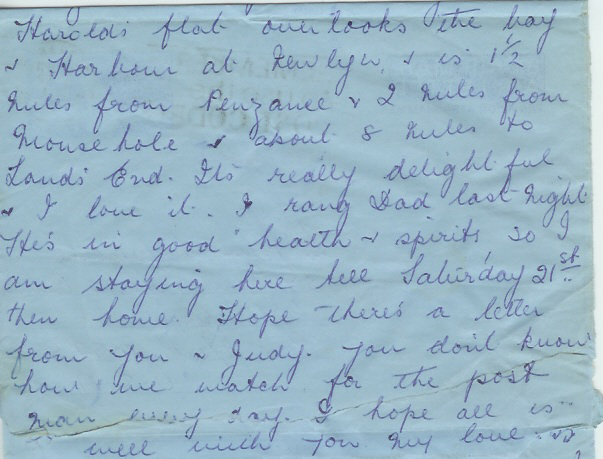 Harold's flat overlooks the bay
& Harbour at Newlyn, & is 1½
miles from Penzance & 2 miles from
Mousehole & about 8 miles to
Lands End. It's really delightful
& I love it. I rang Dad last night
He's in good health & spirits so I
am staying here till Saturday 21st
then home. Hope there's a letter
from you & Judy. You don't know
how we watch for the post
man every day. I hope all is
well with you my love